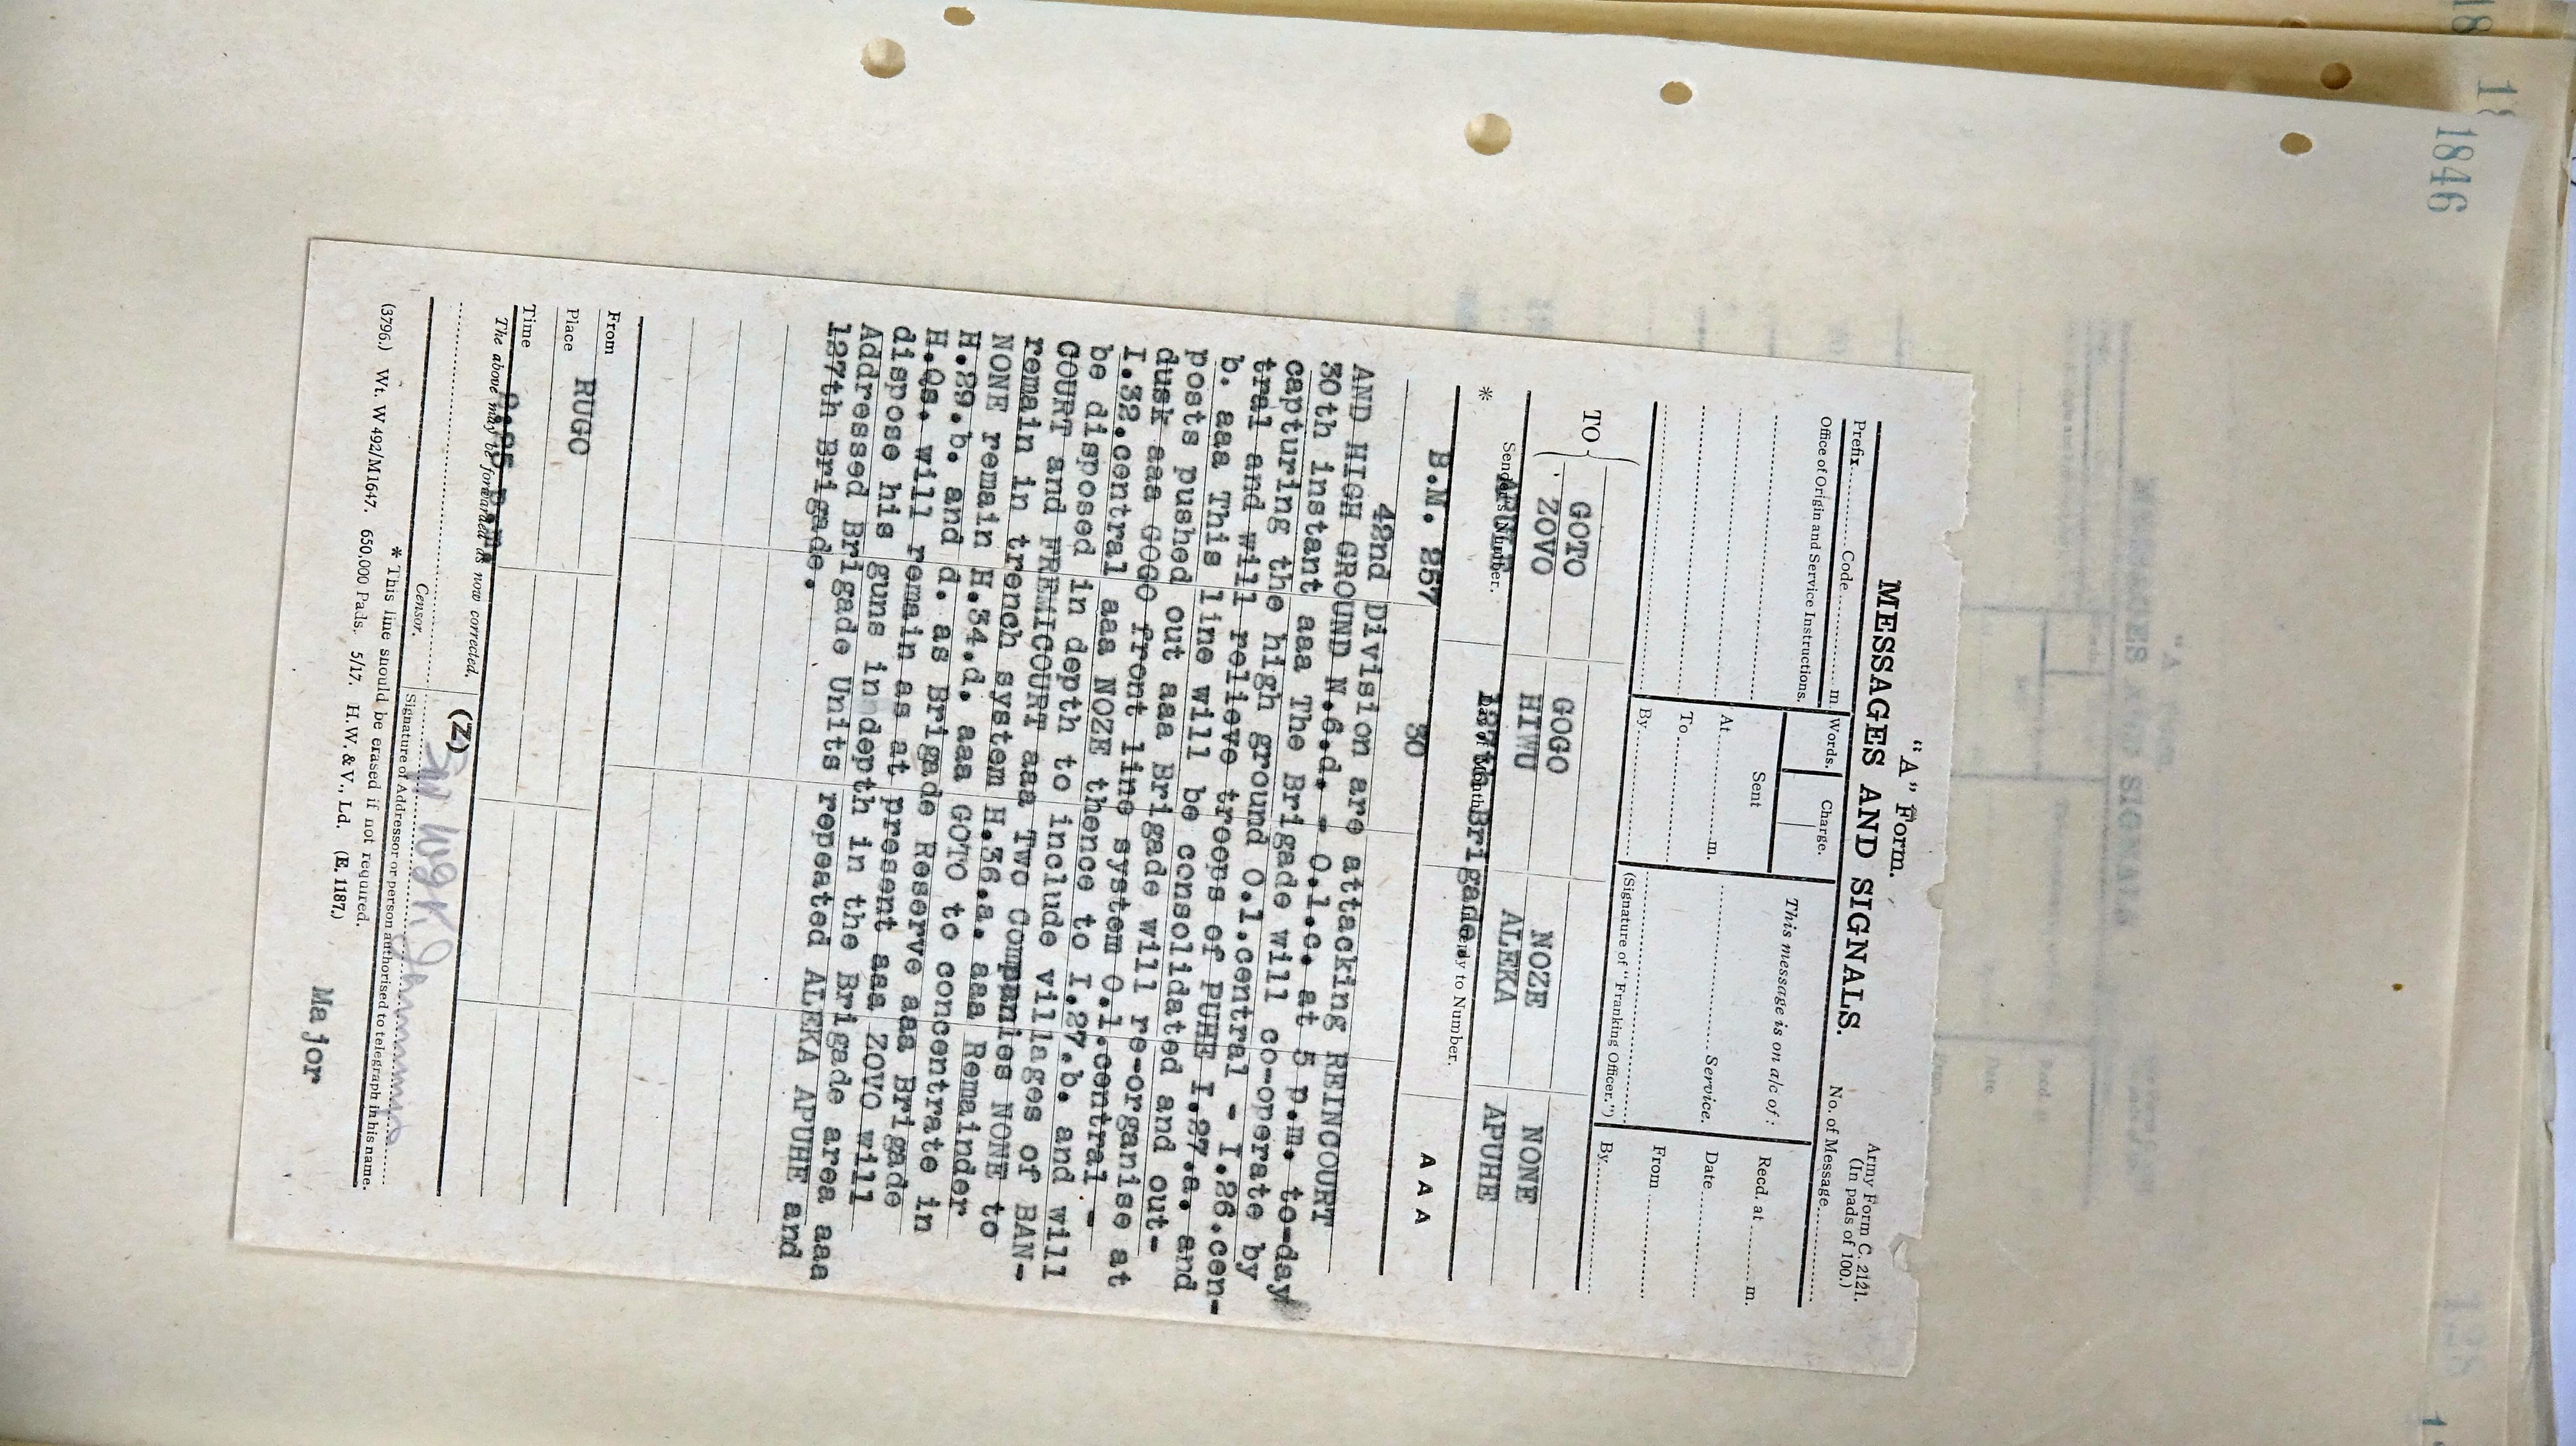 1846
"A" Form.
Army Form C. 2121.
(In pads of 100.)
MESSAGES AND SIGNALS.
No. of Message
Prefix Code m.
Words.
Charge.
This message is on a/c of:
Recd. at m.
Office of Origin and Service Instructions.
Sent
At m.
Service.
Date
To
From
By
(Signature of "Franking Officer.")
By
TO
GOTO GOGO NOZE NONE
ZOVO HIWU ALEKA APUHE
127th Brigade.
* Sender's Number. Day of Month. In reply to Number.
B.M. 257 30 AAA
42nd Division are attacking REINCOURT
AND HIGH GROUND N.6.d. - O.1.c. at 5 p.m. to-day
30th instant aaa The Brigade will co-operate by
capturing the high ground O.1.central - I.26.cen-
tral and will relieve troops of PUHE I.27.a. and
b. aaa This line will be consolidated and out-
posts pushed out aaa Brigade will re-organise at
dusk aaa GOGO front line system O.1.central -
I.32.central aaa NOZE thence to I.27.b. and will
be disposed in depth to include villages of BAN-
COURT and FREMICOURT aaa Two Companies NONE to
remain in trench system H.36.a. aaa Remainder
NONE remain H.34.d. aaa GOTO to concentrate in
H.29.b. and d. as Brigade Reserve aaa Brigade
H.Qs. will remain as at present aaa ZOVO will
dispose his guns in depth in the Brigade area aaa
Addressed Brigade Units repeated ALEKA APUHE and
127th Brigade.
From
Place RUGO
Time
The above may be forwarded as now corrected. (Z)
Censor. Signature of Addressor or person authorised to telegraph in his name.
* This line should be erased if not required.
(3796.) Wt. W 492/M1647. 650,000 Pads. 5/17. H.W. & V., Ld. (E. 1187.)
Major